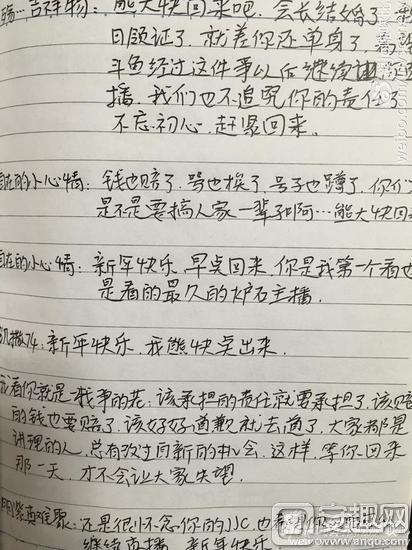 吉祥物：能大快回来吧，会长结婚了
日领证了，就差你还单身了，希
斗鱼经过这件事以后继续让你
播，我们也不追究你的责任了
不忘初心，赶紧回来。
自在的小心情：钱也赔了，骂也挨了，号子也蹲了，你们
是不是要搞人家一辈子啊…能大快回
自在的小心情：新年快乐，早点回来，你是我第一个看也
是看的最久的炉石主播．
撒74：新年快乐，我熊快点出来．
看你就是一场事的花：该承担的责任就要承担了，该赔
的钱也要赔了，该好好道歉就去道了，大家都是
讲理的人，总有改过自新的机会，这样，等你回来
那一天，才不会让大家失望．
：还是很怀念你的JJC，也
继续直播，新年快乐
weibo.com
安趣网
www.anqu.com